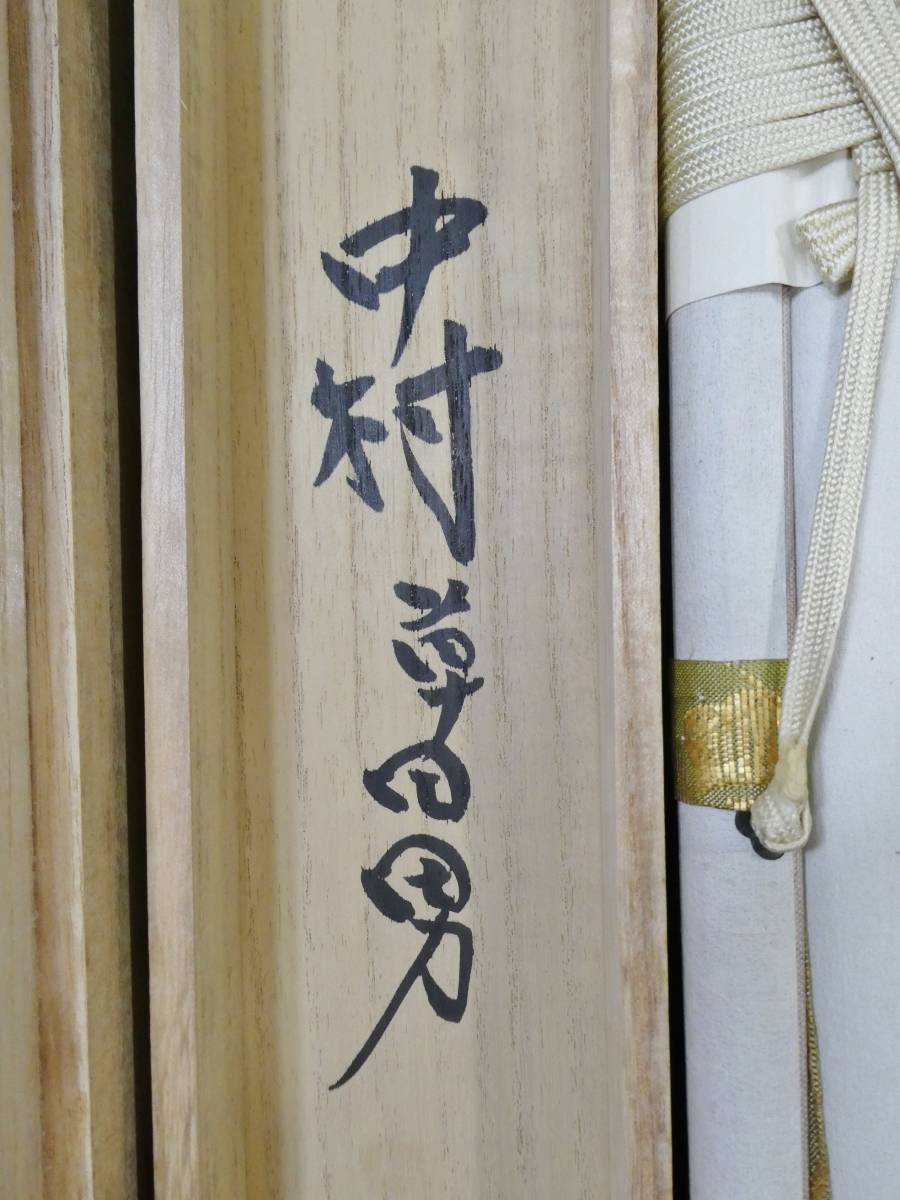 中村草田男